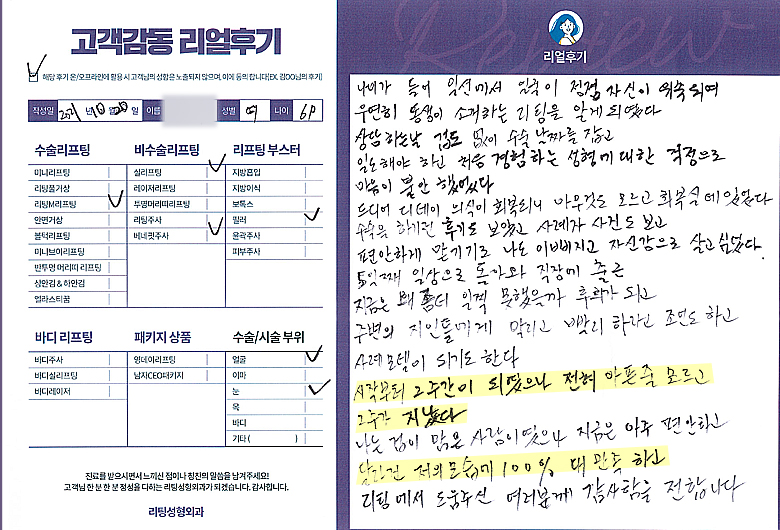 고객감동 리얼후기
해당 후기 온/오프라인에 활용 시 고객님의 성함은 노출되지 않으며, 이에 동의 합니다(EX. 김OO님의 후기)
작성일 2021 년 10 월 20 일 이름 성별 여 나이 68
수술리프팅
미니리프팅
리팅풀가상
리팅M리프팅
안면거상
볼턱리프팅
미니브이리프팅
반투명 머리띠 리프팅
상안검 & 하안검
엘라스티꿈
비수술리프팅
실리프팅
레이저리프팅
투명머리띠리프팅
리팅주사
베네핏주사
리프팅 부스터
지방흡입
지방이식
보톡스
필러
윤곽주사
피부주사
바디 리프팅
바디주사
바디실리프팅
바디레이저
패키지 상품
영데이리프팅
남자CEO패키지
수술/시술 부위
얼굴
이마
눈
목
바디
기타 ( )
진료를 받으시면서 느끼신 점이나 칭찬의 말씀을 남겨주세요!
고객님 한 분 한 분 정성을 다하는 리팅성형외과가 되겠습니다. 감사합니다.
리팅성형외과
Review
리얼후기
나이가 들어 일선에서 일하기 점점 자신이 위축되며
우연히 동생이 소개하는 리팅을 알게 되였다
상담하는날 검토 없이 수술 날짜를 잡고
일도해야 하신 처음 경험하는 성형에 대한 걱정으로
마음이 불안 했었었다
드디어 디데이 의식이 회복되니 아무것도 모르고 회복실에 있었다
수술을 하기전 후기도 보았고 사례자 사진도 보고
편안하게 맡기기로 나도 이뻐지고 자신감으로 살고 싶었다.
5일째 일상으로 돌아와 직장에 출근
지금은 왜 좀더 일찍 못했을까 후회가 되고
주변의 지인들에게 알리고 빨리 하라고 조언도 하고
사례모델이 되기도 한다
시작부터 2주간이 되였으나 전혀 아픈줄 모르고
2주가 지났다
나는 겁이 많은 사람이였으나 지금은 아주 편안하고
달라진 저의 모습에 100% 대 만족 하고
리팅에서 도움주신 여러분께 감사함을 전합니다